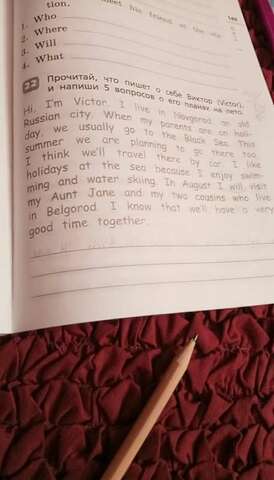 tion.
meet his friend at the sta-
1. Who
2. Where
3. Will
4. What
22 Прочитай, что пишет о себе Виктор (Victor),
и напиши 5 вопросов о его планах на лето.
Hi, I'm Victor. I live in Novgorod, an old
Russian city. When my parents are on holi-
day, we usually go to the Black Sea. This
summer we are planning to go there too.
I think we'll travel there by car. I like
holidays at the sea because I enjoy swim-
ming and water skiing. In August I will visit
my Aunt Jane and my two cousins who live
in Belgorod. I know that we'll have a very
good time together.